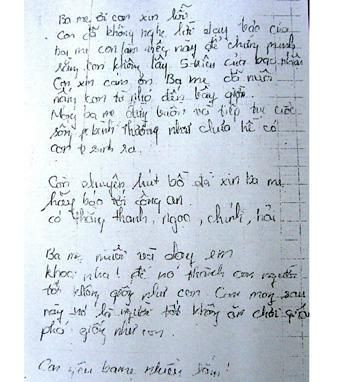 Ba mẹ ơi con xin lỗi
Con đã không nghe lời dạy bảo của
ba mẹ con làm thế này để chứng minh
rằng con không lấy 5 triệu của bạc nhân
Con xin cám ơn Ba mẹ đã nuôi
nấng con từ nhỏ đến bây giờ.
Mong ba mẹ đừng buồn và tiếp tục cuộc
sống bình thường như chưa hề có
con sinh ra.
Còn chuyện hút bồ đà xin ba mẹ
hãy báo với công an.
có thằng thanh, ngoc, chính, hải
Ba mẹ nuôi và dạy em
khoa nha! để nó thành con người
tốt không giống như con. Con mong sau
này nó là người tốt không ăn chơi quậy
phá giống như con.
Con yêu ba mẹ nhiều lắm!